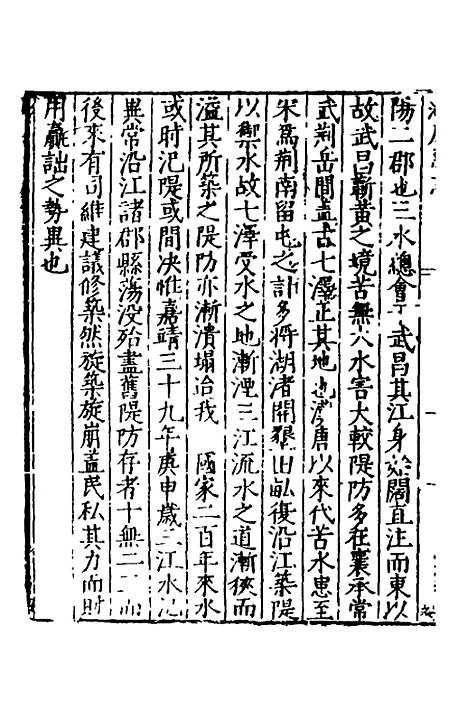 陽二郡也三水總會于武昌其江身始闊直注而東以
故武昌蘄黃之境苦無大水害大較隄防多在襄承常
武荆岳間蓋古七澤正其地也漢唐以來代苦水患至
宋爲荆南留屯之計多將湖渚開墾田畝復沿江築隄
以禦水故七澤受水之地漸湮三江流水之道漸狹而
溢其所築之隄防亦漸潰塌迨我 國家二百年來水
或時氾隄或間决惟嘉靖三十九年庚申歲三江水氾
異常沿江諸郡縣蕩没殆盡舊隄防存者十無二三而
後來有司雖建議修築然旋築旋崩蓋民私其力而財
用贏詘之勢異也